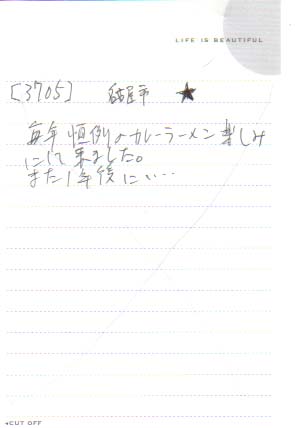 LIFE IS BEAUTIFUL
[3705] 名古屋市 ★
毎年恒例のカレーラーメン楽しみ
にして来ました。
また1年後に…
CUT OFF